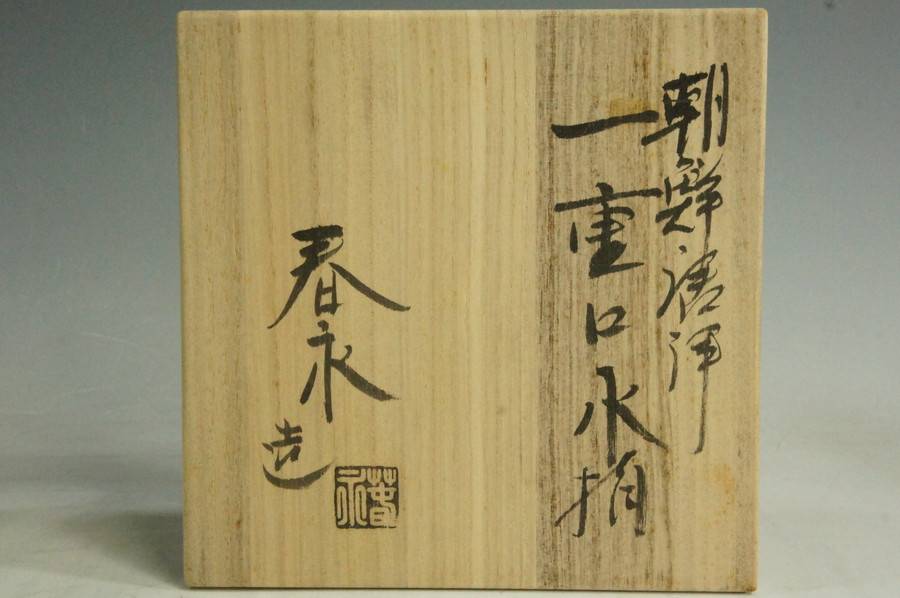 朝鮮唐津
一重口水指
春永造
春永